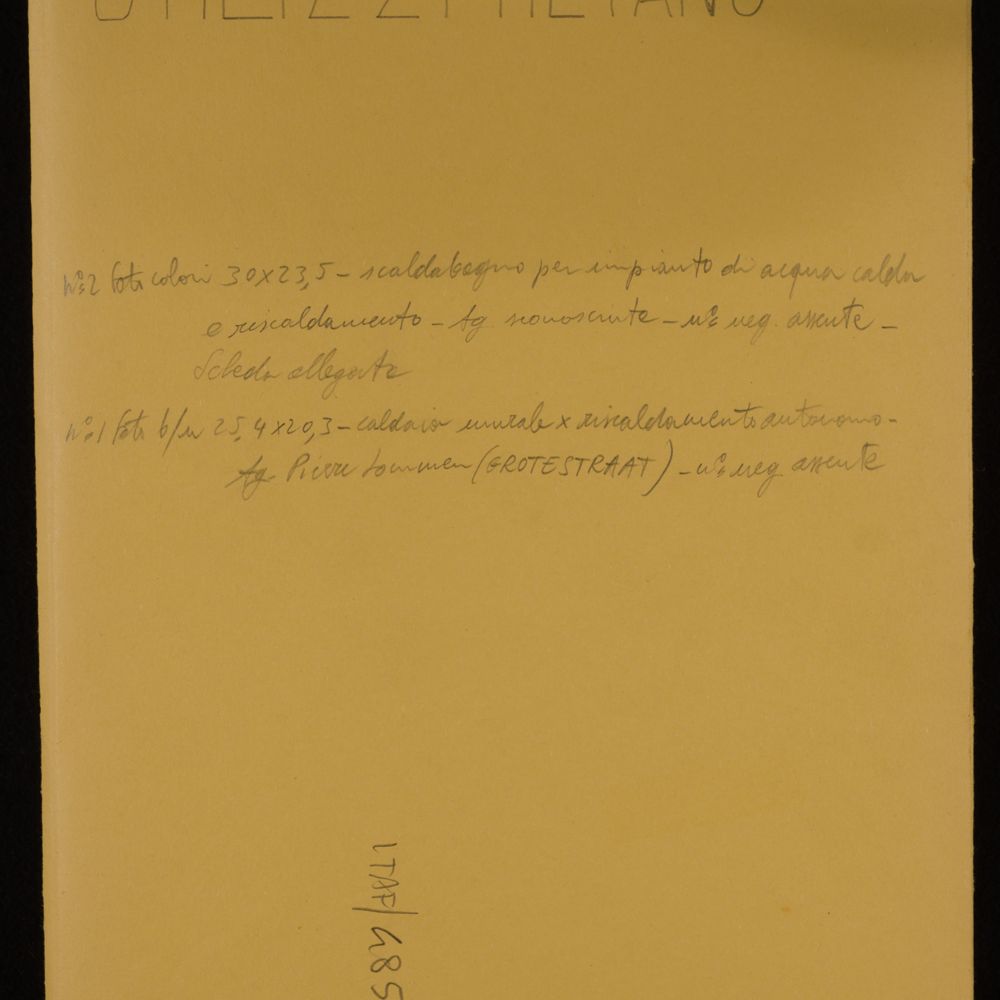 UTILIZZI METANO
n°:2 foto colori 30x23,5 - scaldabagno per impianto di acqua calda
e riscaldamento - Ag. sconosciuto - n°: neg. assente -
Scheda allegata
n°:1 foto b/n 25,4x20,3 - caldaia murale x riscaldamento autonomo -
Ag. Pierre (GROTESTRAAT) - n°: neg assente
/485